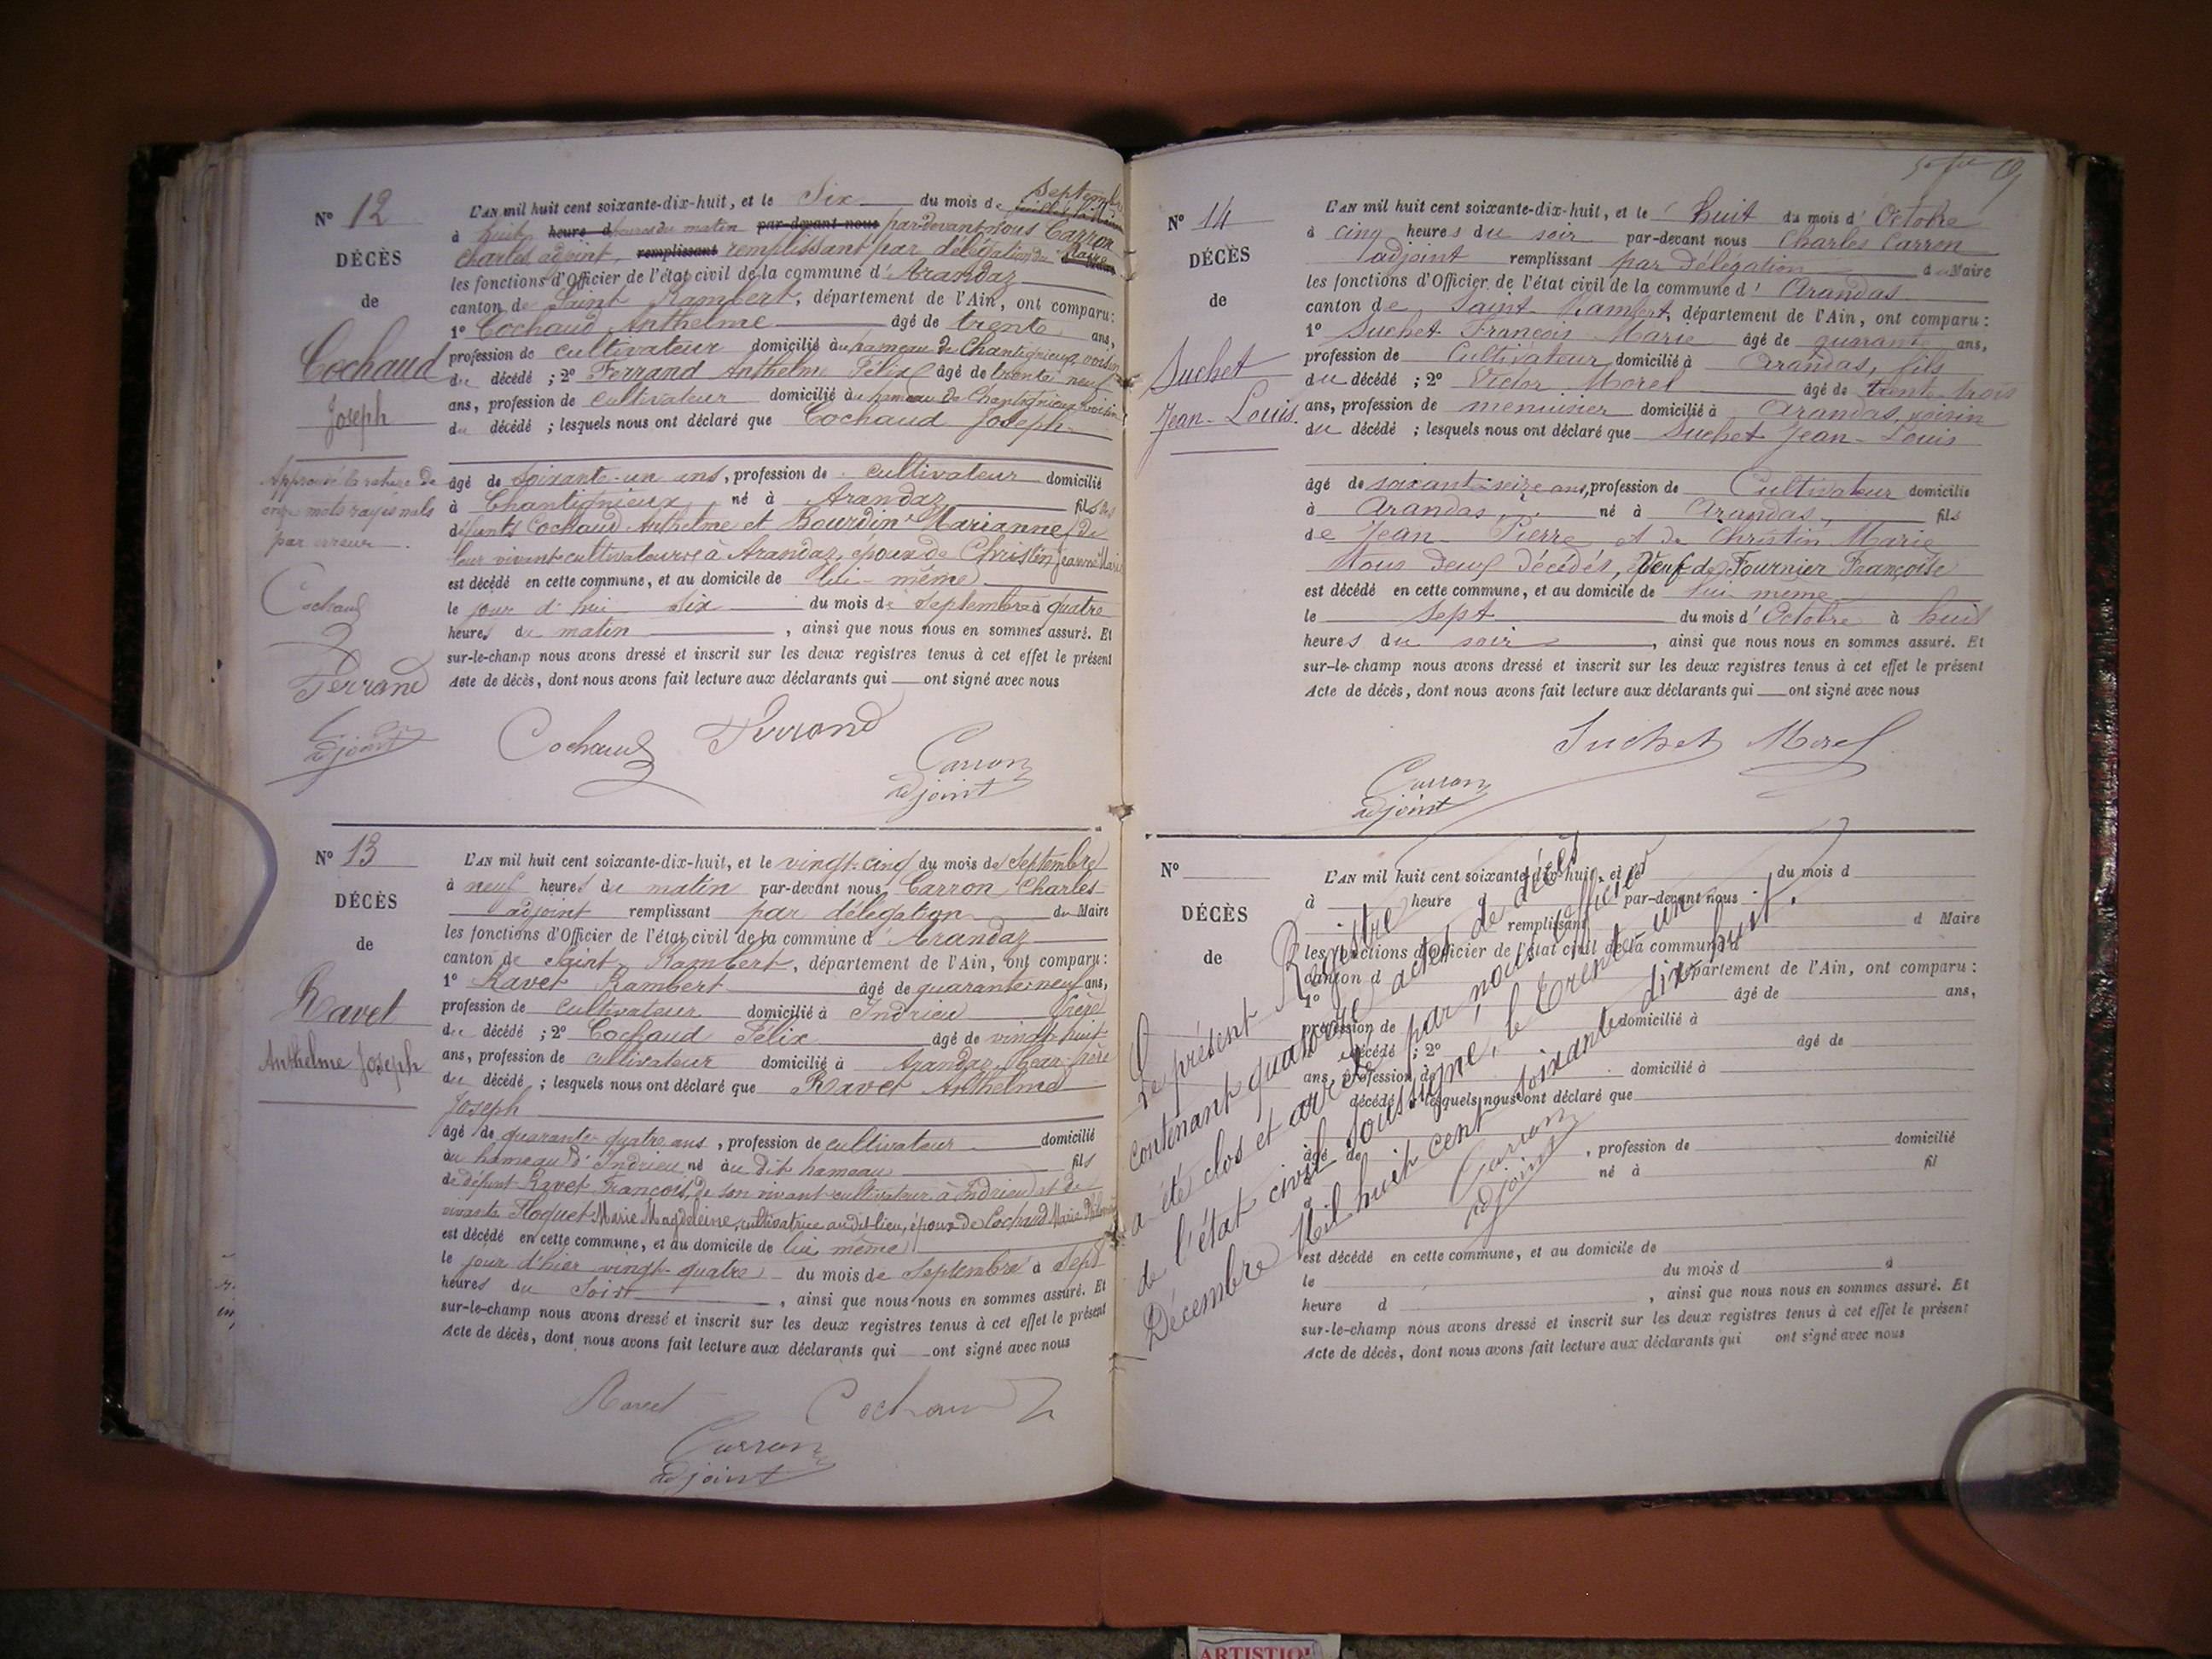 N° 12
DÉCÈS
de
Cochaud
Joseph
Approuvé la rature de
onze mots rayés nuls
par erreur.
Cochaud
Ferrand
adjoint
L'AN mil huit cent soixante-dix-huit, et le Six du mois de Septembre
à huit heures du matin par-devant nous par-devant nous Carron
Charles adjoint, remplissant remplissant par délégation du Maire
les fonctions d'Officier de l'état civil de la commune d'Arandaz
canton de Saint Rambert, département de l'Ain, ont comparu :
1° Cochaud Anthelme âgé de trente ans,
profession de cultivateur domicilié au hameau de Chantignieux, voisin
du décédé ; 2° Ferrand Anthelme Félix âgé de trente neuf
ans, profession de cultivateur domicilié au hameau de Chantignieux voisin
du décédé ; lesquels nous ont déclaré que Cochaud Joseph
âgé de soixante-un ans, profession de cultivateur domicilié
à Chantignieux, né à Arandaz fils des
défunts Cochaud Anthelme et Bourdin Marianne, de
leur vivant cultivateurs à Arandaz, époux de Christin Jeanne Marie
est décédé en cette commune, et au domicile de lui-même
le jour d'hui six du mois de Septembre à quatre
heures du matin, ainsi que nous nous en sommes assuré. Et
sur-le-champ nous avons dressé et inscrit sur les deux registres tenus à cet effet le présent
Acte de décès, dont nous avons fait lecture aux déclarants qui ont signé avec nous
Cochaud Ferrand
Carron
adjoint
N° 13
DÉCÈS
de
Ravet
Anthelme Joseph
L'AN mil huit cent soixante-dix-huit, et le vingt-cinq du mois de Septembre
à neuf heures du matin par-devant nous Carron Charles
adjoint remplissant par délégation du Maire
les fonctions d'Officier de l'état civil de la commune d'Arandaz
canton de Saint Rambert, département de l'Ain, ont comparu :
1° Ravet Rambert âgé de quarante-neuf ans,
profession de cultivateur domicilié à Indrieu frère
du décédé ; 2° Cochaud Félix âgé de vingt-huit
ans, profession de cultivateur domicilié à Arandaz, beau-frère
du décédé ; lesquels nous ont déclaré que Ravet Anthelme
Joseph
âgé de quarante-quatre ans, profession de cultivateur domicilié
au hameau d'Indrieu, né au dit hameau fils
de défunt Ravet François, de son vivant cultivateur à Indrieu et de
vivante Floquet Marie Magdeleine, cultivatrice audit lieu, époux de Cochaud Marie
est décédé en cette commune, et au domicile de lui même
le jour d'hier vingt-quatre du mois de Septembre à Sept
heures du Soir, ainsi que nous nous en sommes assuré. Et
sur-le-champ nous avons dressé et inscrit sur les deux registres tenus à cet effet le présent
Acte de décès, dont nous avons fait lecture aux déclarants qui ont signé avec nous
Ravet Cochaud
Carron
adjoint
N° 14
DÉCÈS
de
Suchet
Jean-Louis.
L'AN mil huit cent soixante-dix-huit, et le huit du mois d'Octobre
à cinq heures du soir par-devant nous Charles Carron
adjoint remplissant par délégation du Maire
les fonctions d'Officier de l'état civil de la commune d'Arandas
canton de Saint-Rambert, département de l'Ain, ont comparu :
1° Suchet François Marie âgé de quarante ans,
profession de Cultivateur domicilié à Arandas, fils
du décédé ; 2° Victor Morel âgé de trente-trois
ans, profession de menuisier domicilié à Arandas, voisin
du décédé ; lesquels nous ont déclaré que Suchet Jean-Louis
âgé de soixante-seize ans, profession de Cultivateur domicilié
à Arandas, né à Arandas, fils
de Jean-Pierre et de Christin Marie
tous deux décédés, veuf de Fournier Françoise
est décédé en cette commune, et au domicile de lui même
le sept du mois d'Octobre à huit
heures du soir, ainsi que nous nous en sommes assuré. Et
sur-le-champ nous avons dressé et inscrit sur les deux registres tenus à cet effet le présent
Acte de décès, dont nous avons fait lecture aux déclarants qui ont signé avec nous
Suchet Morel
Carron
adjoint
N°
DÉCÈS
de
L'AN mil huit cent soixante-dix-huit, et le du mois d
à heure par-devant nous
remplissant d Maire
les fonctions d'Officier de l'état civil de la commune d
canton d département de l'Ain, ont comparu :
1° âgé de ans,
profession de domicilié à
décédé ; 2° âgé de
ans, profession de domicilié à
décédé ; lesquels nous ont déclaré que
âgé de , profession de domicilié
né à fil
est décédé en cette commune, et au domicile de
le du mois d à
heure d , ainsi que nous nous en sommes assuré. Et
sur-le-champ nous avons dressé et inscrit sur les deux registres tenus à cet effet le présent
Acte de décès, dont nous avons fait lecture aux déclarants qui ont signé avec nous
Le présent Registre
contenant quatorze actes de décès
a été clos et arrêté par nous officier
de l'état civil soussigné, le trente un
Décembre Mil huit cent soixante dix huit.
Carron
adjoint
ARTISTIQ